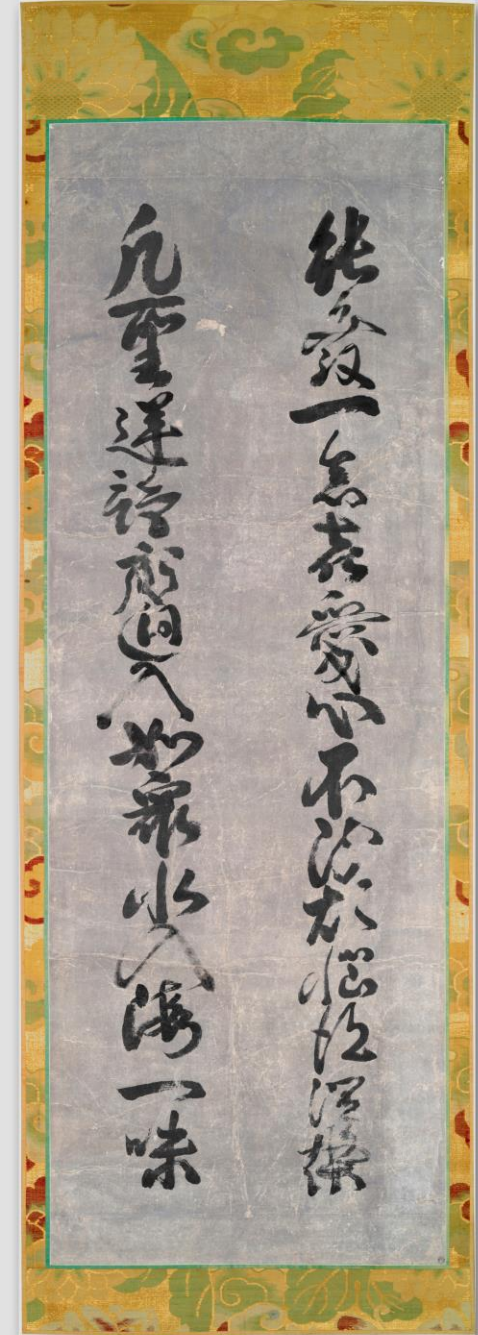 能發一念喜愛心不断煩悩得涅槃
凡聖逆謗斉廻入如衆水入海一味